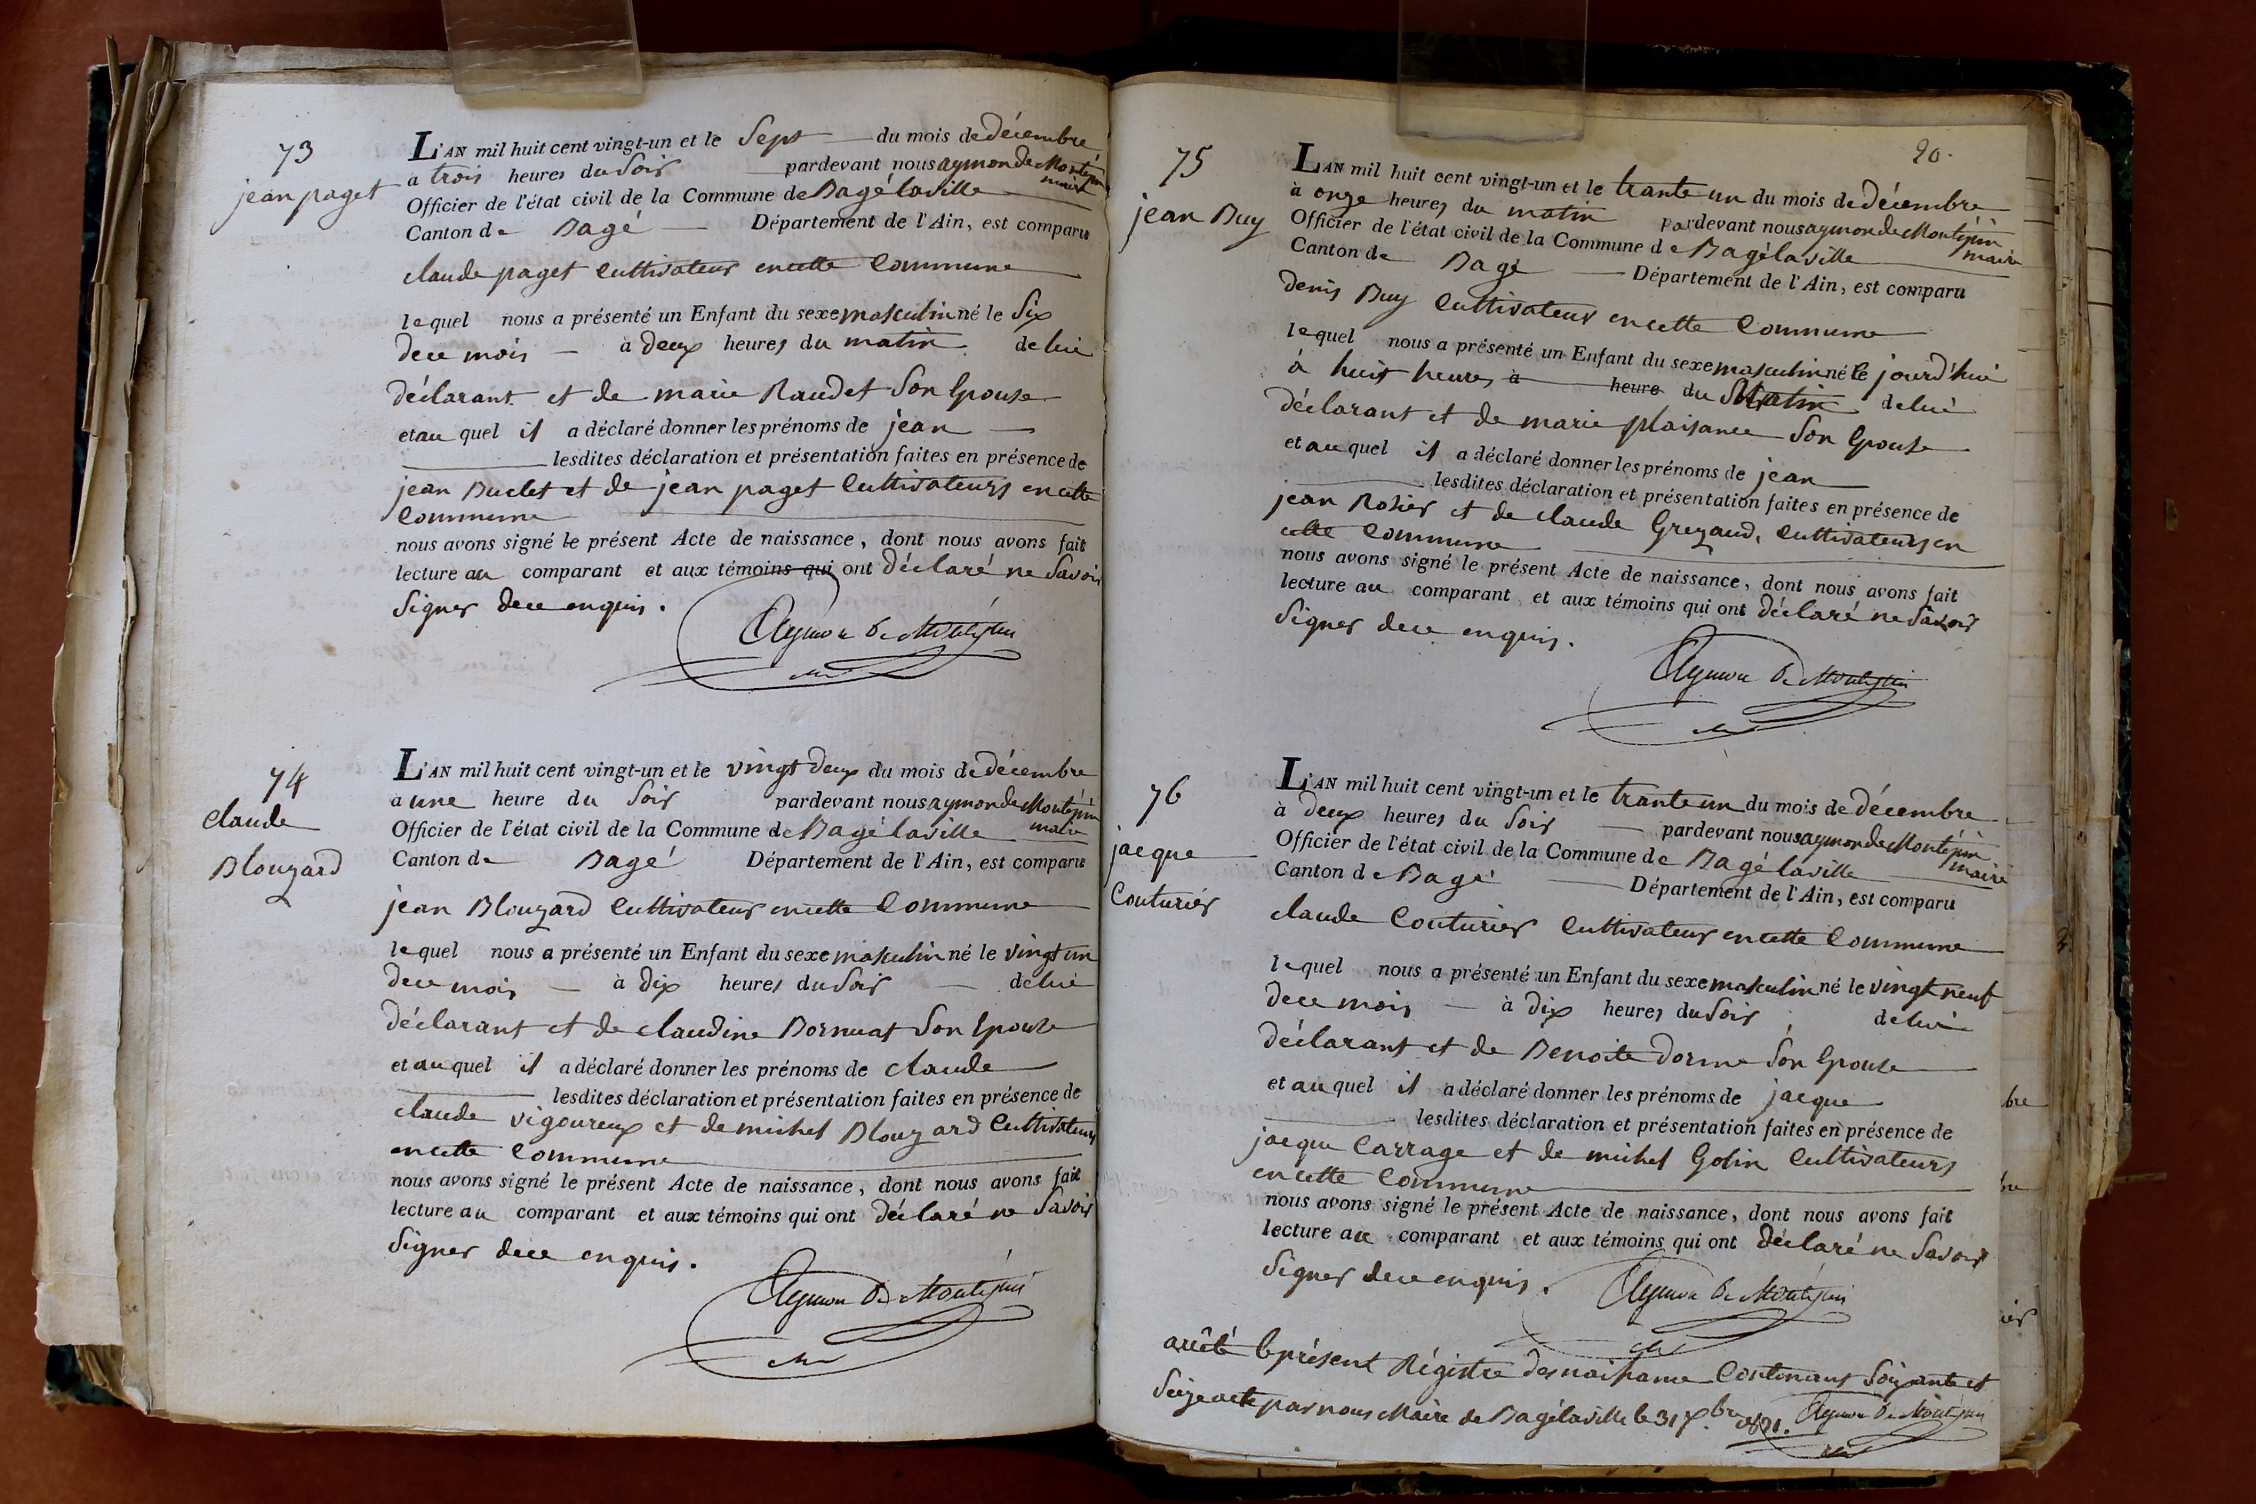 73
jean paget
L'AN mil huit cent vingt-un et le Sept du mois de décembre
à trois heures du Soir pardevant nous aymon de Montépin
maire
Officier de l'état civil de la Commune de Bagé laville
Canton de Bagé Département de l'Ain, est comparu
claude paget Cultivateur en cette Commune
lequel nous a présenté un Enfant du sexe masculin né le Six
de ce mois à deux heures du matin de lui
déclarant et de marie Raudet Son Epouse
et au quel il a déclaré donner les prénoms de jean
lesdites déclaration et présentation faites en présence de
jean Buclet et de jean paget Cultivateurs en cette
Commune
nous avons signé le présent Acte de naissance, dont nous avons fait
lecture au comparant et aux témoins qui ont déclaré ne Savoir
Signer de ce enquis.
Aymon De Montépin
74
claude
Blouzard
L'AN mil huit cent vingt-un et le vingt deux du mois de décembre
à une heure du Soir pardevant nous aymon de Montépin
maire
Officier de l'état civil de la Commune de Bagé laville
Canton de Bagé Département de l'Ain, est comparu
jean Blouzard Cultivateur en cette Commune
lequel nous a présenté un Enfant du sexe masculin né le vingt un
de ce mois à dix heures du Soir de lui
déclarant et de claudine Bornuat Son Epouse
et au quel il a déclaré donner les prénoms de claude
lesdites déclaration et présentation faites en présence de
claude vigoureux et de michel Blouzard Cultivateurs
en cette Commune
nous avons signé le présent Acte de naissance, dont nous avons fait
lecture au comparant et aux témoins qui ont déclaré ne Savoir
Signer de ce enquis.
Aymon De Montépin
20.
75
jean Buy
L'AN mil huit cent vingt-un et le trante un du mois de décembre
à onze heures du matin pardevant nous aymon de Montépin
maire
Officier de l'état civil de la Commune de Bagé laville
Canton de Bagé Département de l'Ain, est comparu
denis Buy Cultivateur en cette Commune
lequel nous a présenté un Enfant du sexe masculin né le jourd'hui
à huit heures à heure du Matin de lui
déclarant et de marie plaisance Son Epouse
et au quel il a déclaré donner les prénoms de jean
lesdites déclaration et présentation faites en présence de
jean Rosier et de claude Grezaud, Cultivateurs en
cette Commune
nous avons signé le présent Acte de naissance, dont nous avons fait
lecture au comparant et aux témoins qui ont déclaré ne Savoir
Signer de ce enquis.
Aymon De Montépin
76
jacque
Couturier
L'AN mil huit cent vingt-un et le trante un du mois de décembre
à deux heures du Soir pardevant nous aymon de Montépin
maire
Officier de l'état civil de la Commune de Bagé laville
Canton de Bagé Département de l'Ain, est comparu
claude Couturier Cultivateur en cette Commune
lequel nous a présenté un Enfant du sexe masculin né le vingt neuf
de ce mois à dix heures du Soir de lui
déclarant et de Benoite dorme Son Epouse
et au quel il a déclaré donner les prénoms de jacque
lesdites déclaration et présentation faites en présence de
jacque Carrage et de michel Golin Cultivateurs
en cette Commune
nous avons signé le présent Acte de naissance, dont nous avons fait
lecture au comparant et aux témoins qui ont déclaré ne Savoir
Signer de ce enquis.
Aymon De Montépin
arrêté le présent Régistre des naissance Contenant Soixante et
Seize acte par nous Maire de Bagé laville le 31 Xbre 1821. Aymon De Montépin